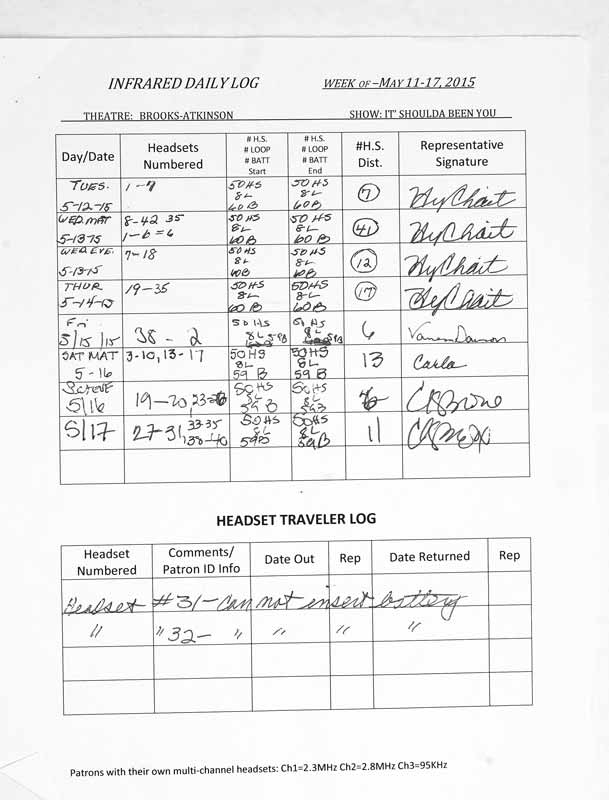 INFRARED DAILY LOG WEEK OF –MAY 11-17, 2015
THEATRE: BROOKS-ATKINSON SHOW: IT' SHOULDA BEEN YOU
Day/Date Headsets Numbered # H.S. # LOOP # BATT Start # H.S. # LOOP # BATT End #H.S. Dist. Representative Signature
TUES. 5-12-15 1-7 50 HS 8L 60 B 50 HS 8L 60 B 7 Hy Chait
WED MAT 5-13-15 8-42 35 1-6 = 6 50 HS 8L 60B 50 HS 8L 60 B 41 Hy Chait
WED. EVE. 5-13-15 7-18 50 HS 8L 60B 50 HS 8L 60B 12 Hy Chait
THUR 5-14-15 19-35 50 HS 8L 60 B 50 HS 8L 60B 17 Hy Chait
Fri 5/15/15 38 - 2 50 HS 8L 59B 50 HS 8L 59B 6
SAT MAT 5-16 3-10, 13-17 50 HS 8L 59 B 50HS 8L 59 B 13 Carla
5/16 19-20, 50 HS 8L 59 B 50 HS 8L 59B
5/17 27-31, 33-35 38-40 50HS 8L 59B 50HS 8L 59B 11
HEADSET TRAVELER LOG
Headset Numbered Comments/ Patron ID Info Date Out Rep Date Returned Rep
Headset #31 - can not insert battery
" " 32 - " " " "
Patrons with their own multi-channel headsets: Ch1=2.3MHz Ch2=2.8MHz Ch3=95KHz